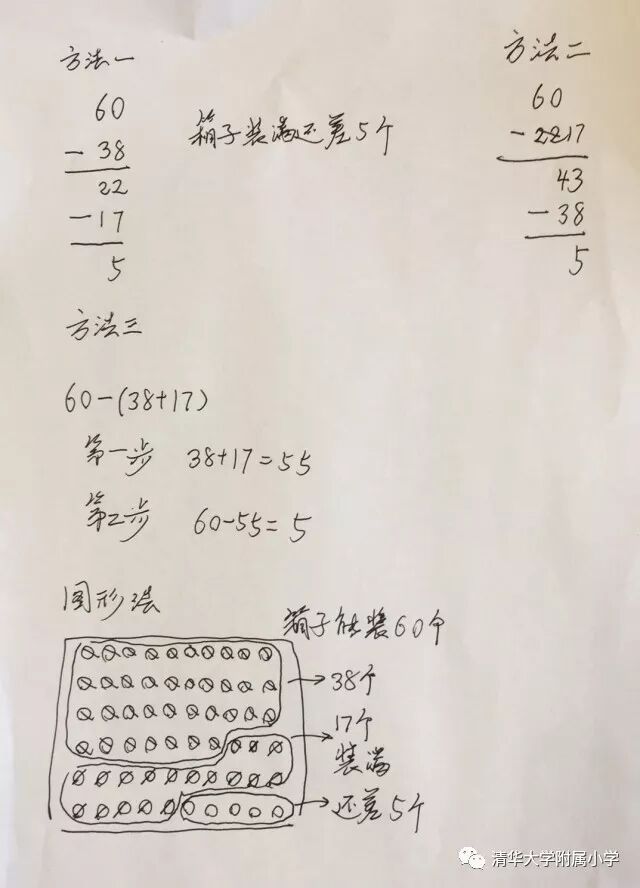 方法一
60
－38
22
－17
5
箱子装满还差5个
方法二
60
－2217
43
－38
5
方法三
60－(38+17)
第一步 38+17=55
第2步 60－55=5
图形法
箱子能装60个
38个
17个
装满
还差5个
清华大学附属小学